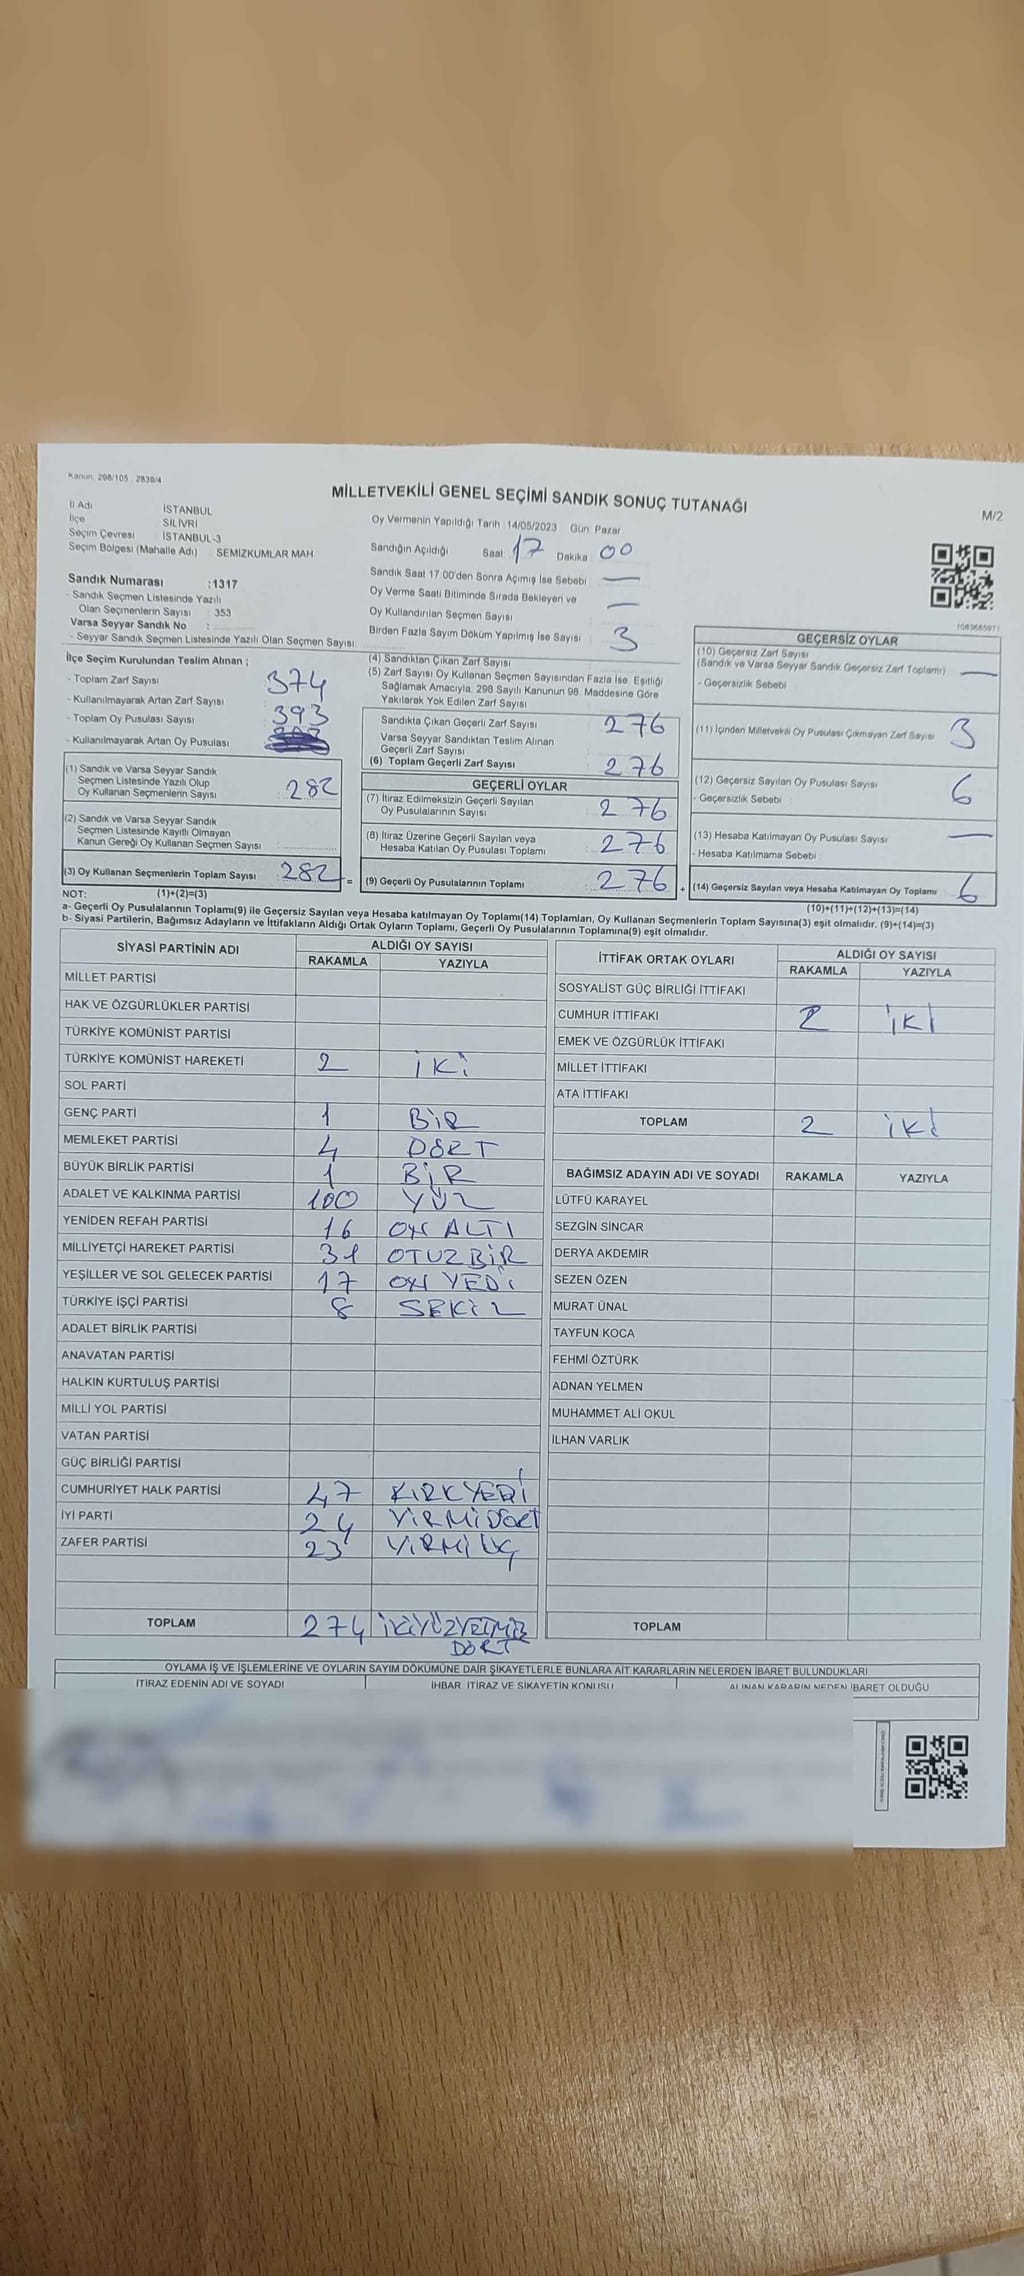 Kanun: 298/105 , 2839/4
MİLLETVEKİLİ GENEL SEÇİMİ SANDIK SONUÇ TUTANAĞI
M/2
İl Adı İSTANBUL
İlçe SİLİVRİ
Seçim Çevresi İSTANBUL-3
Seçim Bölgesi (Mahalle Adı) : SEMİZKUMLAR MAH
Sandık Numarası :1317
- Sandık Seçmen Listesinde Yazılı
Olan Seçmenlerin Sayısı : 353
Varsa Seyyar Sandık No :
- Seyyar Sandık Seçmen Listesinde Yazılı Olan Seçmen Sayısı:
Oy Vermenin Yapıldığı Tarih :14/05/2023 Gün: Pazar
Sandığın Açıldığı Saat 17 Dakika : 00
Sandık Saat 17.00'den Sonra Açımış İse Sebebi : —
Oy Verme Saati Bitiminde Sırada Bekleyen ve
Oy Kullandırılan Seçmen Sayısı : —
Birden Fazla Sayım Döküm Yapılmış İse Sayısı : 3
İlçe Seçim Kurulundan Teslim Alınan ;
- Toplam Zarf Sayısı 374
- Kullanılmayarak Artan Zarf Sayısı : 393
- Toplam Oy Pusulası Sayısı
- Kullanılmayarak Artan Oy Pusulası
(1) Sandık ve Varsa Seyyar Sandık
Seçmen Listesinde Yazılı Olup
Oy Kullanan Seçmenlerin Sayısı : 282
(2) Sandık ve Varsa Seyyar Sandık
Seçmen Listesinde Kayıtlı Olmayan
Kanun Gereği Oy Kullanan Seçmen Sayısı :
(3) Oy Kullanan Seçmenlerin Toplam Sayısı : 282 =
(4) Sandıktan Çıkan Zarf Sayısı
(5) Zarf Sayısı Oy Kullanan Seçmen Sayısından Fazla İse, Eşitliği
Sağlamak Amacıyla, 298 Sayılı Kanunun 98. Maddesine Göre
Yakılarak Yok Edilen Zarf Sayısı
Sandıkta Çıkan Geçerli Zarf Sayısı : 276
Varsa Seyyar Sandıktan Teslim Alınan
Geçerli Zarf Sayısı
(6) Toplam Geçerli Zarf Sayısı : 276
GEÇERLİ OYLAR
(7) İtiraz Edilmeksizin Geçerli Sayılan
Oy Pusulalarının Sayısı : 276
(8) İtiraz Üzerine Geçerli Sayılan veya
Hesaba Katılan Oy Pusulası Toplamı : 276
(9) Geçerli Oy Pusulalarının Toplamı : 276 +
GEÇERSİZ OYLAR
(10) Geçersiz Zarf Sayısı
(Sandık ve Varsa Seyyar Sandık Geçersiz Zarf Toplamı) : —
- Geçersizlik Sebebi
(11) İçinden Milletvekili Oy Pusulası Çıkmayan Zarf Sayısı : 3
(12) Geçersiz Sayılan Oy Pusulası Sayısı : 6
- Geçersizlik Sebebi :
(13) Hesaba Katılmayan Oy Pusulası Sayısı : —
- Hesaba Katılmama Sebebi :
(14) Geçersiz Sayılan veya Hesaba Katılmayan Oy Toplamı : 6
NOT: (1)+(2)=(3) (10)+(11)+(12)+(13)=(14)
a- Geçerli Oy Pusulalarının Toplamı(9) ile Geçersiz Sayılan veya Hesaba katılmayan Oy Toplamı(14) Toplamları, Oy Kullanan Seçmenlerin Toplam Sayısına(3) eşit olmalıdır. (9)+(14)=(3)
b- Siyasi Partilerin, Bağımsız Adayların ve İttifakların Aldığı Ortak Oyların Toplamı, Geçerli Oy Pusulalarının Toplamına(9) eşit olmalıdır.
SİYASİ PARTİNİN ADI ALDIĞI OY SAYISI
RAKAMLA YAZIYLA
MİLLET PARTİSİ
HAK VE ÖZGÜRLÜKLER PARTİSİ
TÜRKİYE KOMÜNİST PARTİSİ
TÜRKİYE KOMÜNİST HAREKETİ 2 İKİ
SOL PARTİ
GENÇ PARTİ 1 BİR
MEMLEKET PARTİSİ 4 DÖRT
BÜYÜK BİRLİK PARTİSİ 1 BİR
ADALET VE KALKINMA PARTİSİ 100 YÜZ
YENİDEN REFAH PARTİSİ 16 ON ALTI
MİLLİYETÇİ HAREKET PARTİSİ 31 OTUZ BİR
YEŞİLLER VE SOL GELECEK PARTİSİ 17 ON YEDİ
TÜRKİYE İŞÇİ PARTİSİ 8 SEKİZ
ADALET BİRLİK PARTİSİ
ANAVATAN PARTİSİ
HALKIN KURTULUŞ PARTİSİ
MİLLİ YOL PARTİSİ
VATAN PARTİSİ
GÜÇ BİRLİĞİ PARTİSİ
CUMHURİYET HALK PARTİSİ 47 KIRKYEDİ
İYİ PARTİ 24 YİRMİDÖRT
ZAFER PARTİSİ 23 YİRMİ ÜÇ
TOPLAM 274 İKİYÜZYETMİŞ
DÖRT
İTTİFAK ORTAK OYLARI ALDIĞI OY SAYISI
RAKAMLA YAZIYLA
SOSYALİST GÜÇ BİRLİĞİ İTTİFAKI
CUMHUR İTTİFAKI 2 İKİ
EMEK VE ÖZGÜRLÜK İTTİFAKI
MİLLET İTTİFAKI
ATA İTTİFAKI
TOPLAM 2 İKİ
BAĞIMSIZ ADAYIN ADI VE SOYADI RAKAMLA YAZIYLA
LÜTFÜ KARAYEL
SEZGİN SİNCAR
DERYA AKDEMİR
SEZEN ÖZEN
MURAT ÜNAL
TAYFUN KOCA
FEHMİ ÖZTÜRK
ADNAN YELMEN
MUHAMMET ALİ OKUL
İLHAN VARLIK
TOPLAM
OYLAMA İŞ VE İŞLEMLERİNE VE OYLARIN SAYIM DÖKÜMÜNE DAİR ŞİKAYETLERLE BUNLARA AİT KARARLARIN NELERDEN İBARET BULUNDUKLARI
İTİRAZ EDENİN ADI VE SOYADI İHBAR, İTİRAZ VE ŞİKAYETİN KONUSU ALINAN KARARIN NEDEN İBARET OLDUĞU